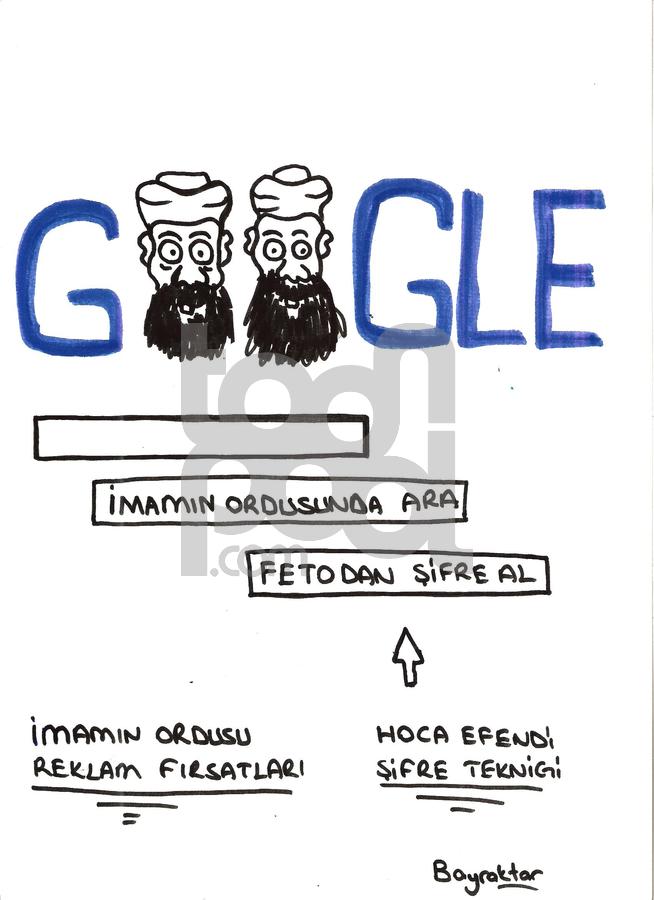 GOOGLE
İMAMIN ORDUSUNDA ARA
FETODAN ŞİFRE AL
İMAMIN ORDUSU
REKLAM FIRSATLARI
HOCA EFENDİ
ŞİFRE TEKNİGİ
Bayraktar
toonpool
.com